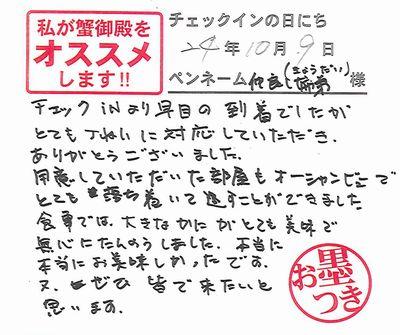 私が蟹御殿を
オススメ
します!!
チェックインの日にち
24年10月9日
ペンネーム 仲良し姉弟(きょうだい) 様
チェックINより早目の到着でしたが
とてもていねいに対応していただき
ありがとうございました。
用意していただいた部屋もオーシャンビューで
とても落ち着いて過すことができました
食事では、大きなかにがとても美味で
無心にたんのうしました。本当に
本当にお美味しかったです。
又、ぜひ皆で来たいと
思います。
お墨つき